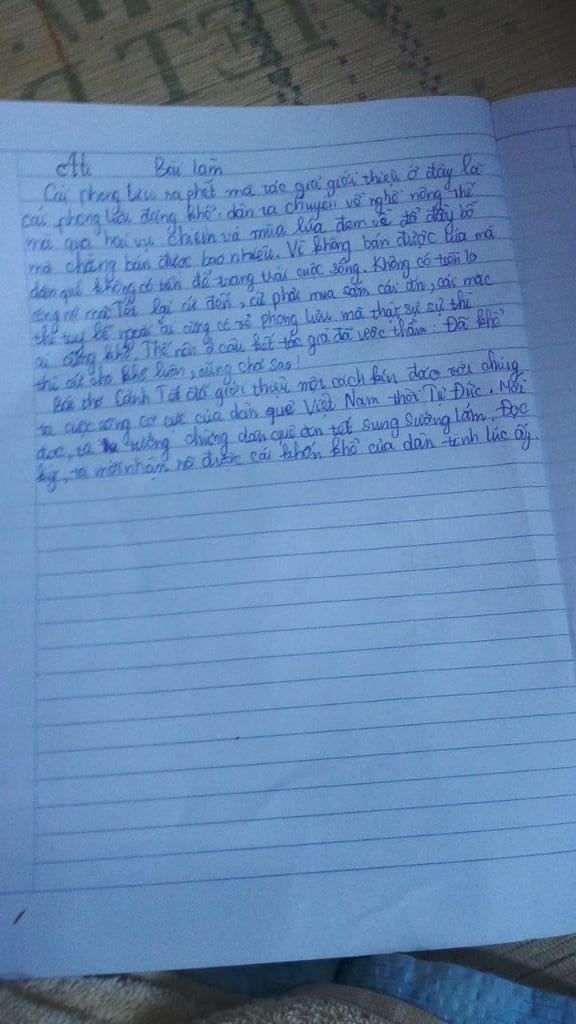 Bài làm
Cái phong lưu ra phết mà tác giả giới thiệu ở đây là
cái phong lưu đáng khổ, dẫn ra chuyện về nghề nông thế
mà qua hai vụ chiêm và mùa lúa đem về đổ đầy bồ
mà chẳng bán được bao nhiêu. Vì không bán được lúa mà
dân quê không có tiền để trang trải cuộc sống. Không có tiền lo
mà Tết lại cứ đến, cứ phải mua sắm cái ăn, cái mặc
thì tuy bề ngoài ai cũng có vẻ phong lưu mà thật sự sự thì
ai cũng khổ. Thế nên ở câu kết tác giả đã viết thầm: Đã khổ
thì cứ cho khổ luôn, cũng chả sao!
Bài thơ Cảnh Tết đã giới thiệu một cách kín đáo với chúng
ta cuộc sống cơ cực của dân quê Việt Nam thời Tự Đức. Mới
đọc, ta tưởng chừng dân quê ăn tết sung sướng lắm. Đọc
kỹ, ta mới nhận rõ được cái khốn khổ của dân tình lúc ấy.